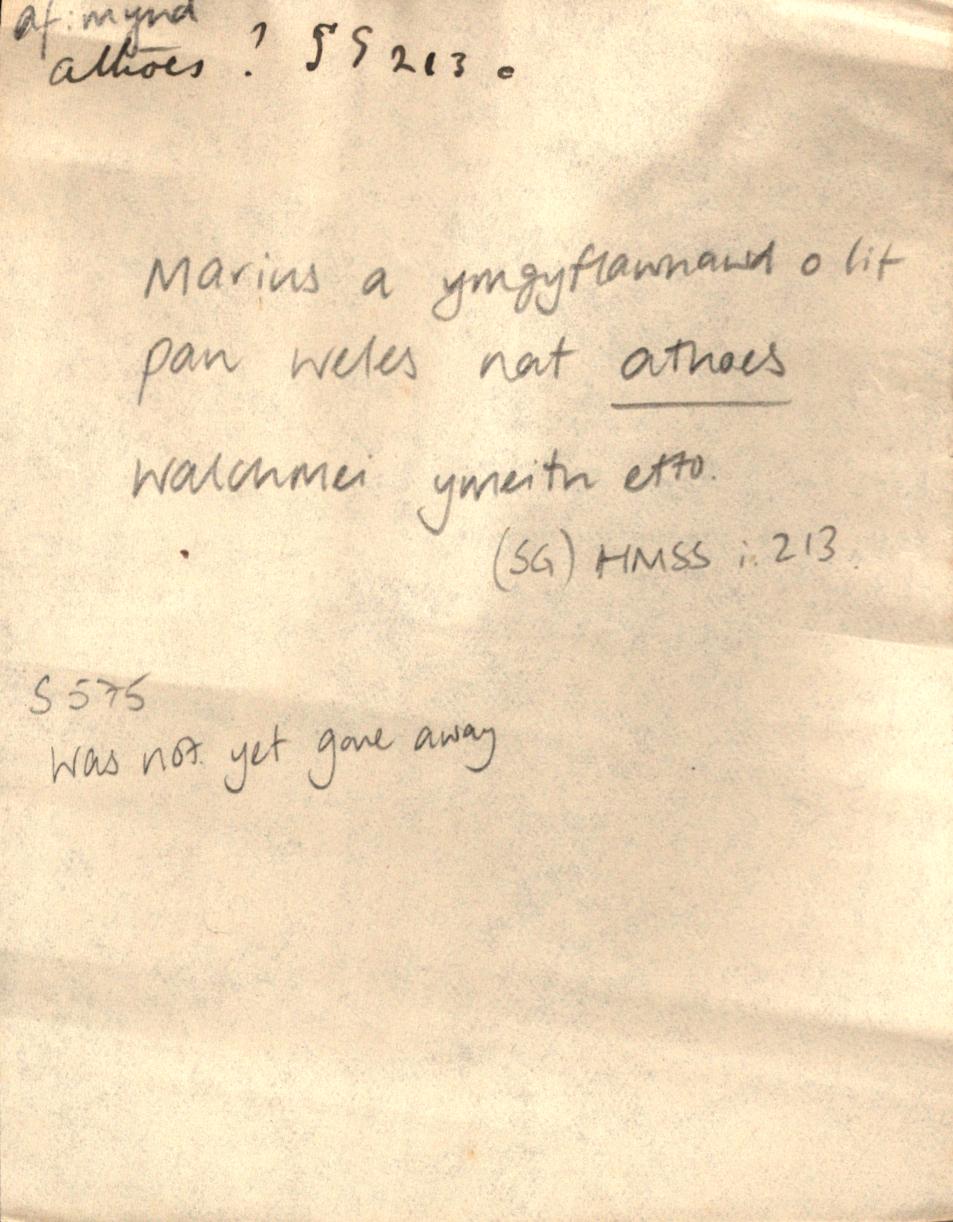 af: mynd
athoes ? § S 213.
Marius a ymgyflawnawd o lit
pan weles nat athoes
Walchmei ymeith etto.
(SG) HMSS i. 213.
S 575
Was not yet gone away